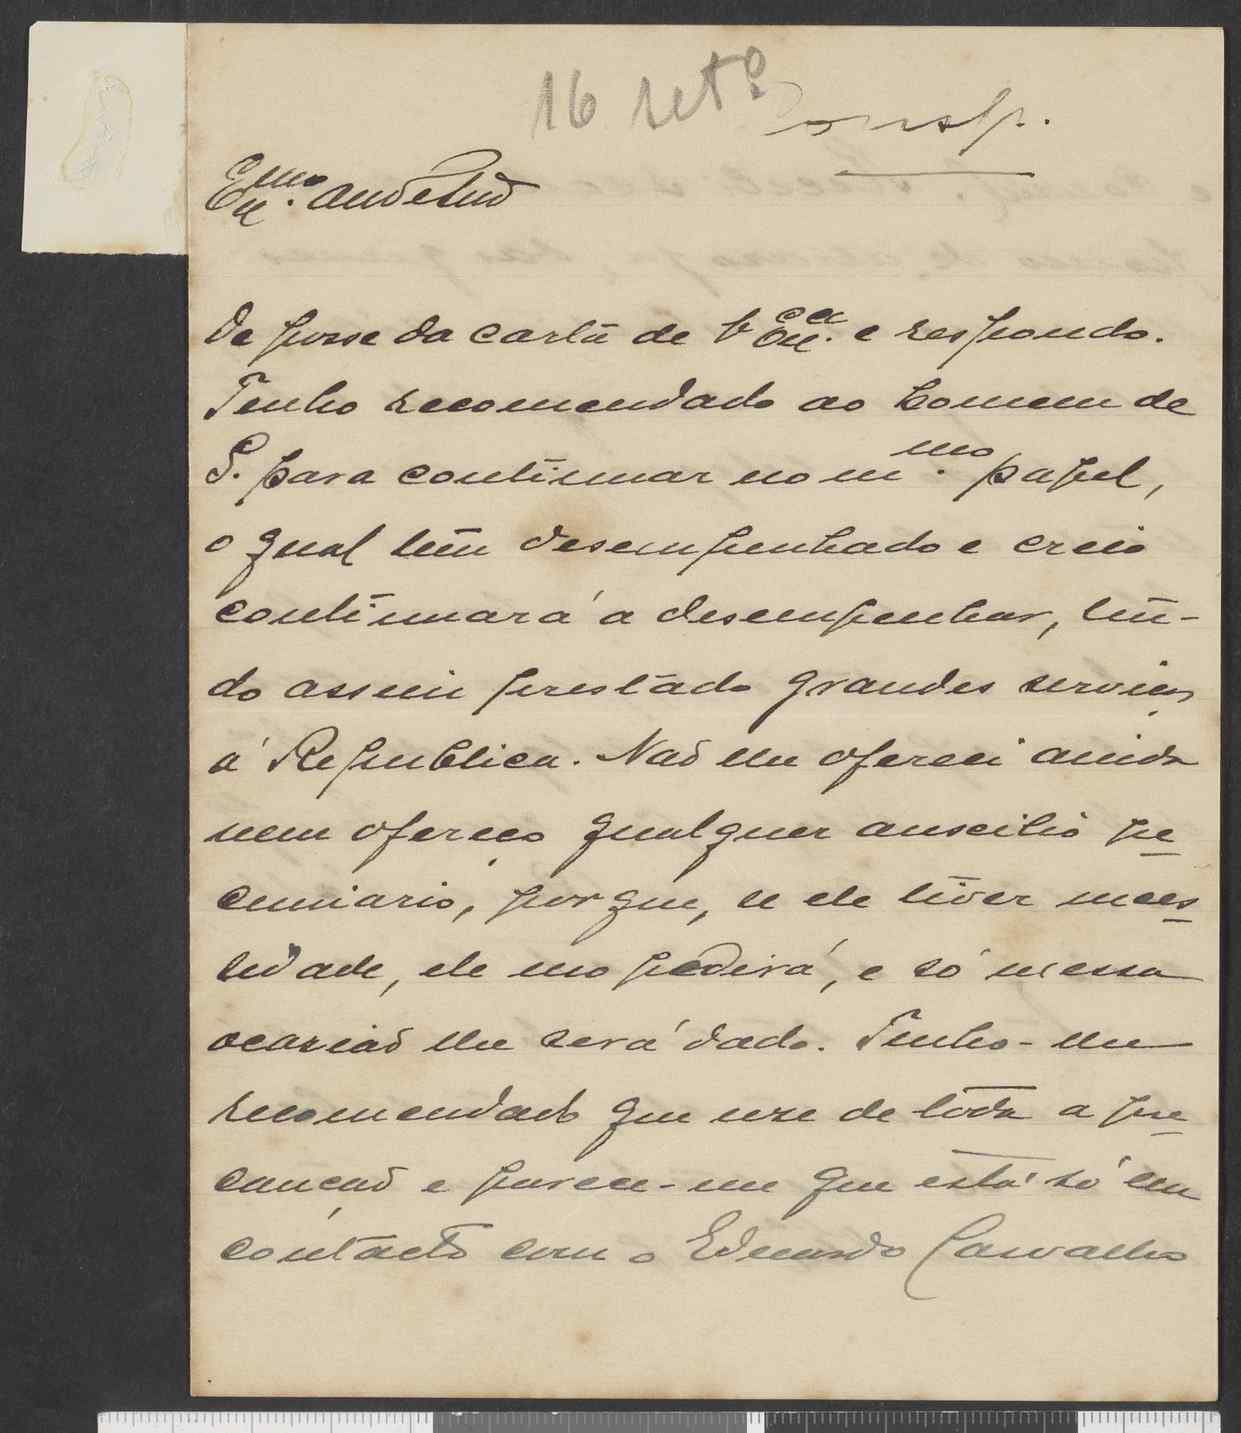 16 setº
resp.
Exmo. am.º e Snr.
De posse da carta de V. Excia. e respondo.
Tenho recomendado ao homem de
S. para continuar no mmo. papel,
o qual tem desempenhado e creio
continuará a desempenhar, ten-
do assim prestado grandes serviços
á Republica. Não lhe ofereci ainda
nem ofereço qualquer auscilio pe
cuniario, porque, se ele tiver neces
sidade, ele mo pedirá, e só nessa
ocasião lhe será dado. Tenho-lhe
recomendado que uze de toda a pre
caução e parece-me que está só em
contacto com o Eduardo Carvalho